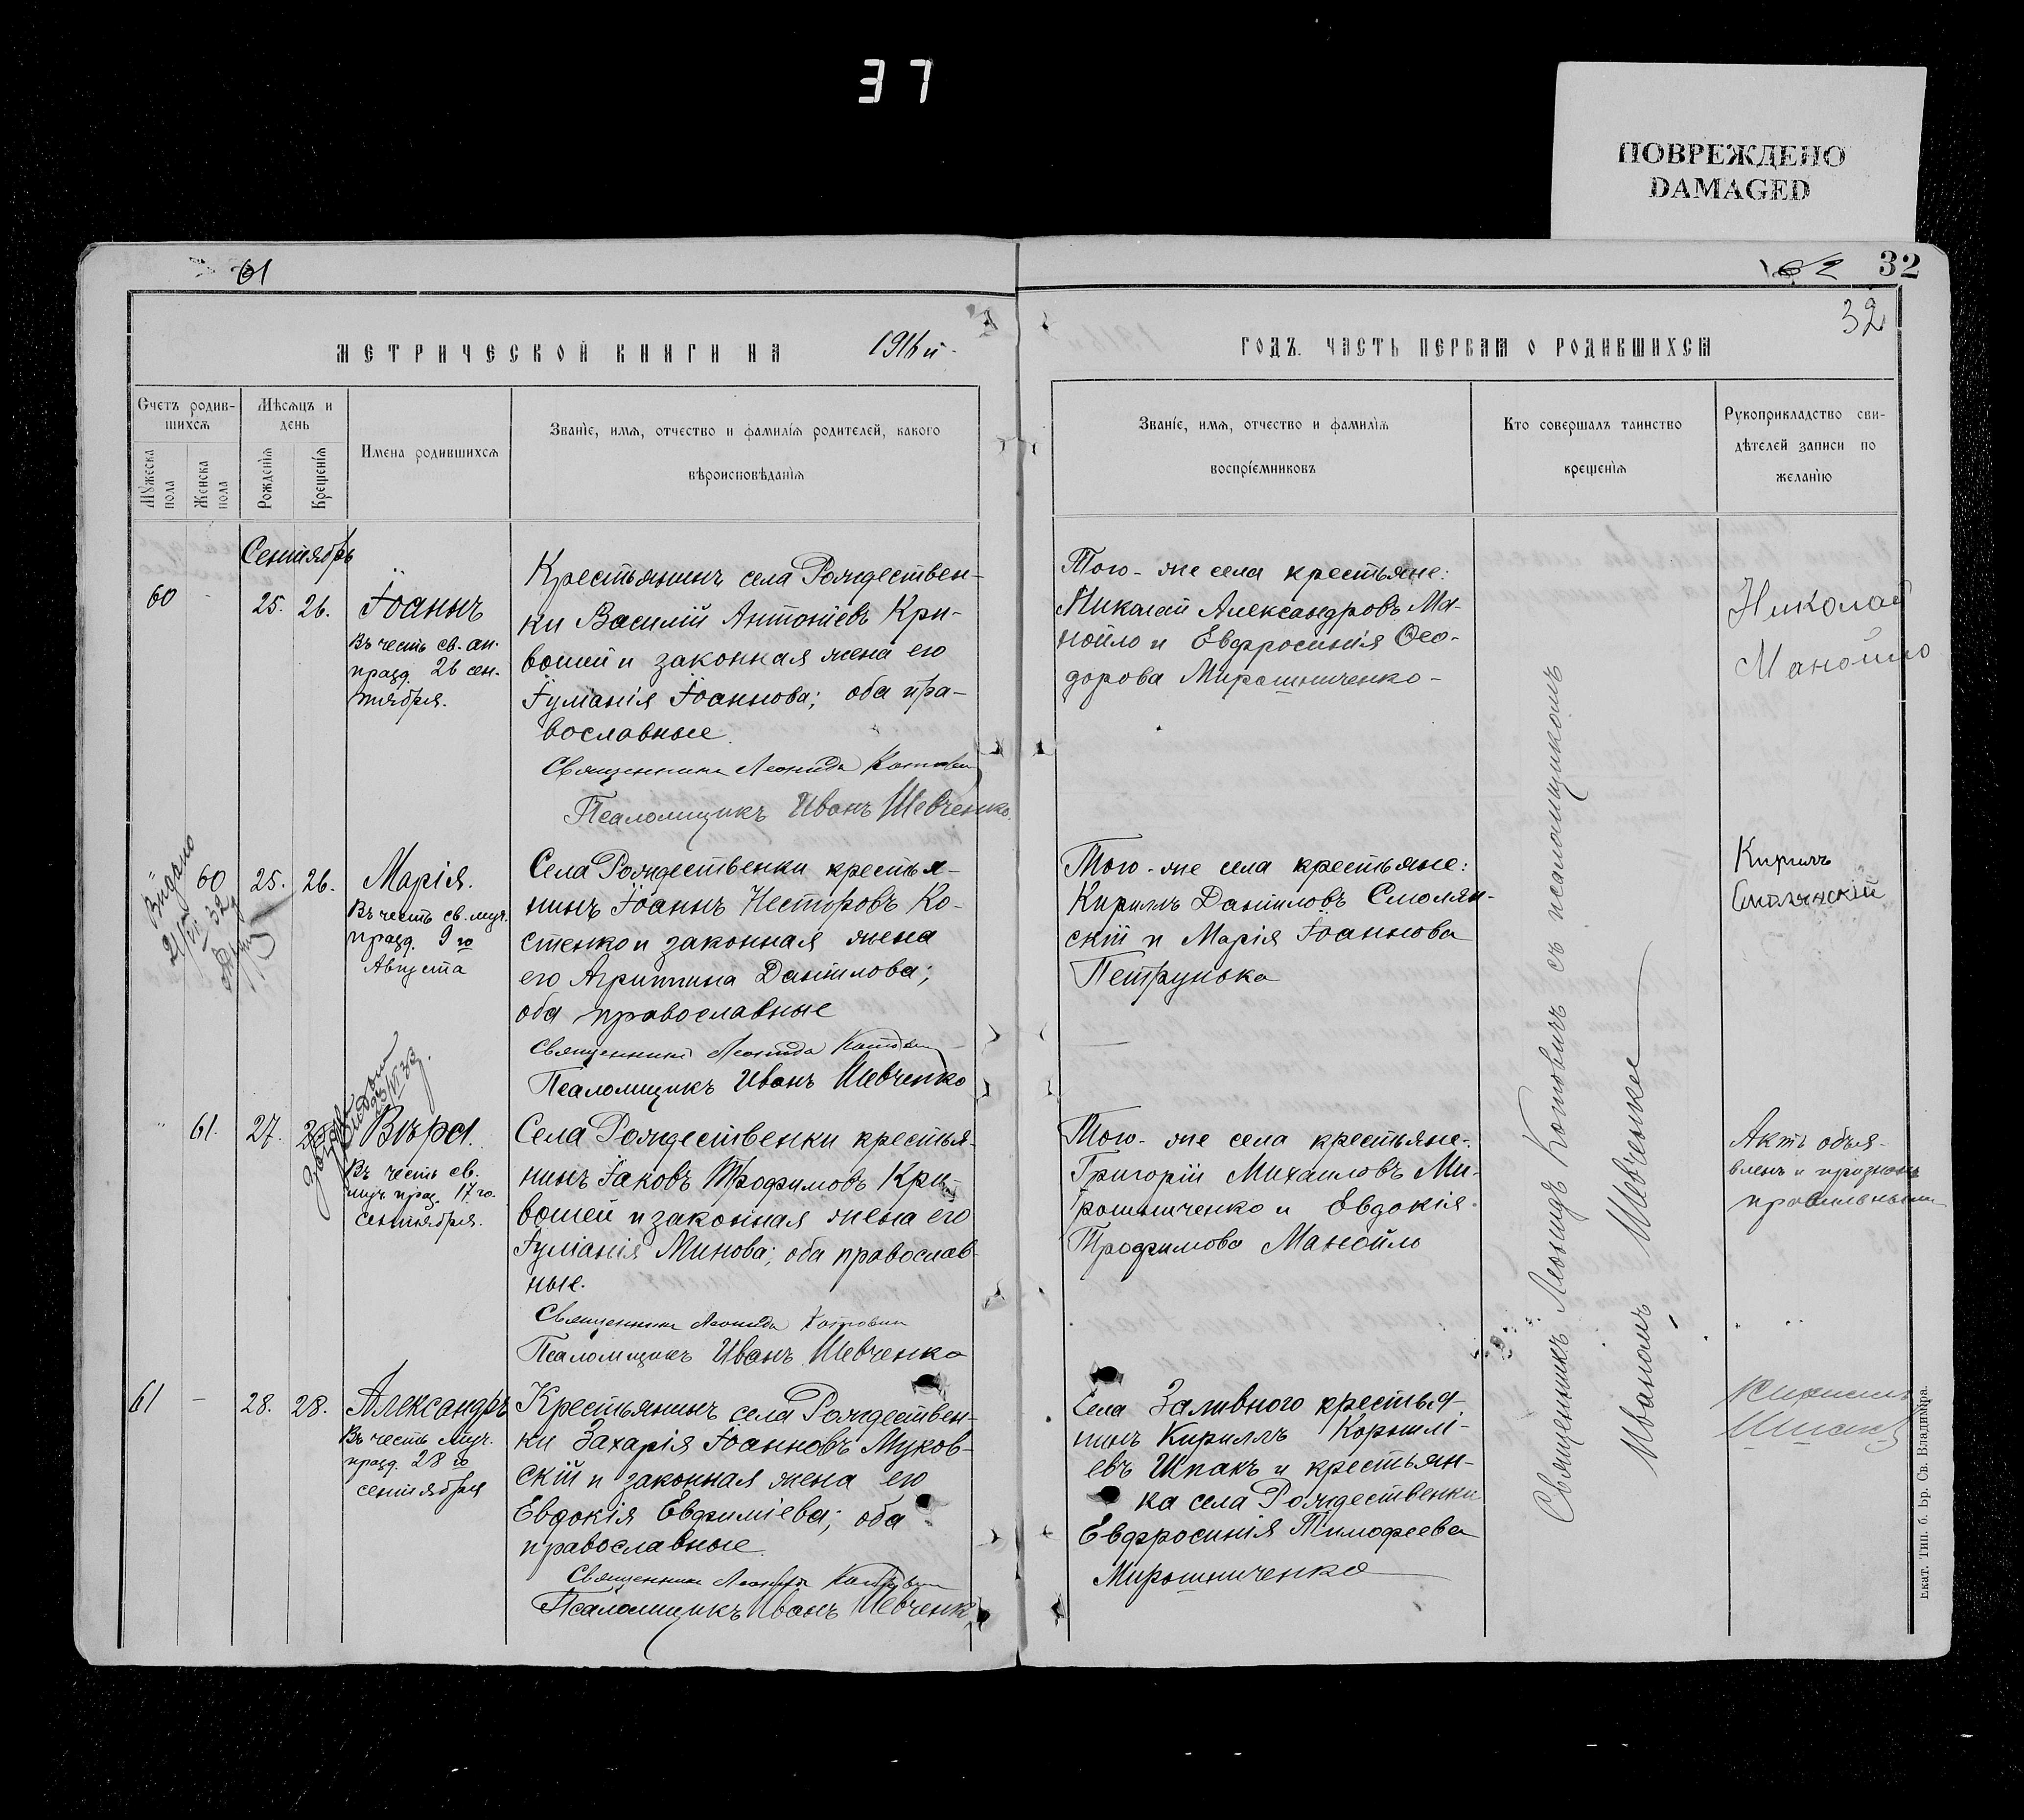 37
ПОВРЕЖДЕНО
DAMAGED
61
62
32
32
МЕТРИЧЕСКОЙ КНИГИ НА 1916 й
ГОДЪ. ЧАСТЬ ПЕРВАЯ О РОДИВШИХСЯ
Счетъ родив-
шихся
Мужеска
пола
Женска
пола
Мѣсяцъ и
день
Рожденія
Крещенія
Имена родившихся
Званіе, имя, отчество и фамилія родителей, какого
вѣроисповѣданія
Званіе, имя, отчество и фамилія
воспріемниковъ
Кто совершалъ таинство
крещенія
Рукоприкладство сви-
дѣтелей записи по
желанію
Сентябрь
60 - 25. 26.
Іоаннъ
Въ честь св. ап.
празд. 26 сен-
тября.
Крестьянинъ села Рождествен-
ки Василій Антоніевъ Кри-
вошей и законная жена его
Іуліанія Іоаннова; оба пра-
вославные.
Священникъ Леонидъ Котович
Псаломщикъ Иванъ Шевченко.
Того-же села крестьяне:
Николай Александровъ Ма-
нойло и Евфросинія Ѳео-
дорова Мирошниченко-
Николай
Манойло
Видано
60 25. 26.
Марія.
Въ честь св. муч.
празд. 9 го
Августа
Села Рождественки крестья-
нинъ Іоаннъ Несторовъ Ко-
стенко и законная жена
его Агриппина Даніилова;
оба православные
Священникъ Леонидъ Котович
Псаломщикъ Иванъ Шевченко
Того-же села крестьяне:
Кириллъ Данииловъ Смолян-
скій и Марія Іоаннова
Петрунька
Кирилъ
Смолянскій
61. 27.
Вѣра.
Въ честь св.
муч. праз. 17 го.
сентября.
Села Рождественки крестья-
нинъ Іаковъ Трофимовъ Кри-
вошей и законная жена его
Іуліанія Минова; оба православ-
ные.
Священникъ Леонидъ Котович
Псаломщикъ Иванъ Шевченко
Того-же села крестьяне:
Григорій Михаиловъ Ми-
рошниченко и Евдокія
Трофимова Манойло
Актъ объя-
вленъ и признанъ
правильнымъ
61 - 28. 28.
Александръ
Въ честь муч.
празд. 28 го
сентября
Крестьянинъ села Рождествен-
ки Захарія Іоанновъ Муков-
скій и законная жена его
Евдокія Евфиміева; оба
православные.
Священникъ Леонидъ Котович
Псаломщикъ Иванъ Шевченк
Села Заливного крестья-
нинъ Кириллъ Корнилі-
евъ Шпакъ и крестьян-
ка села Рождественки
Евфросинія Тимофеева
Мирошниченко
Священникъ Леонидъ Котовичъ съ псаломщикомъ
Иваномъ Шевченко
Екат. Тип. б. Бр. Св. Владиміра.